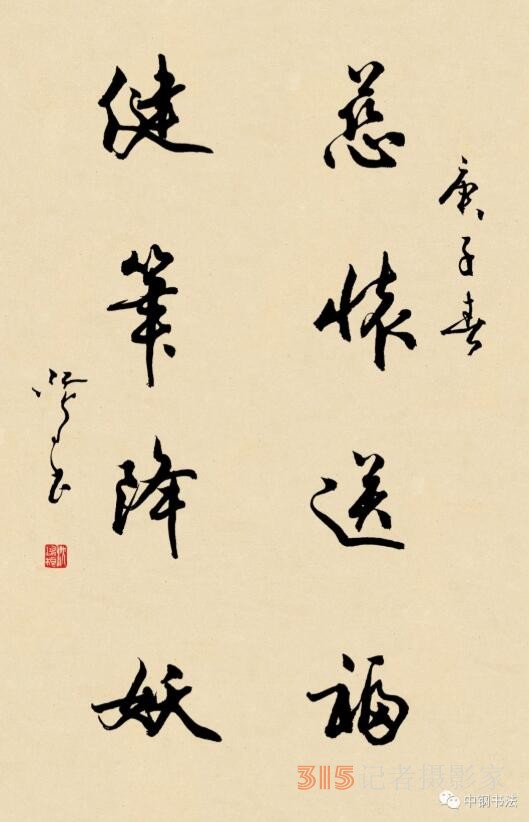 庚子春
慈懷送福
健筆降妖
315记者摄影家
中钢书法